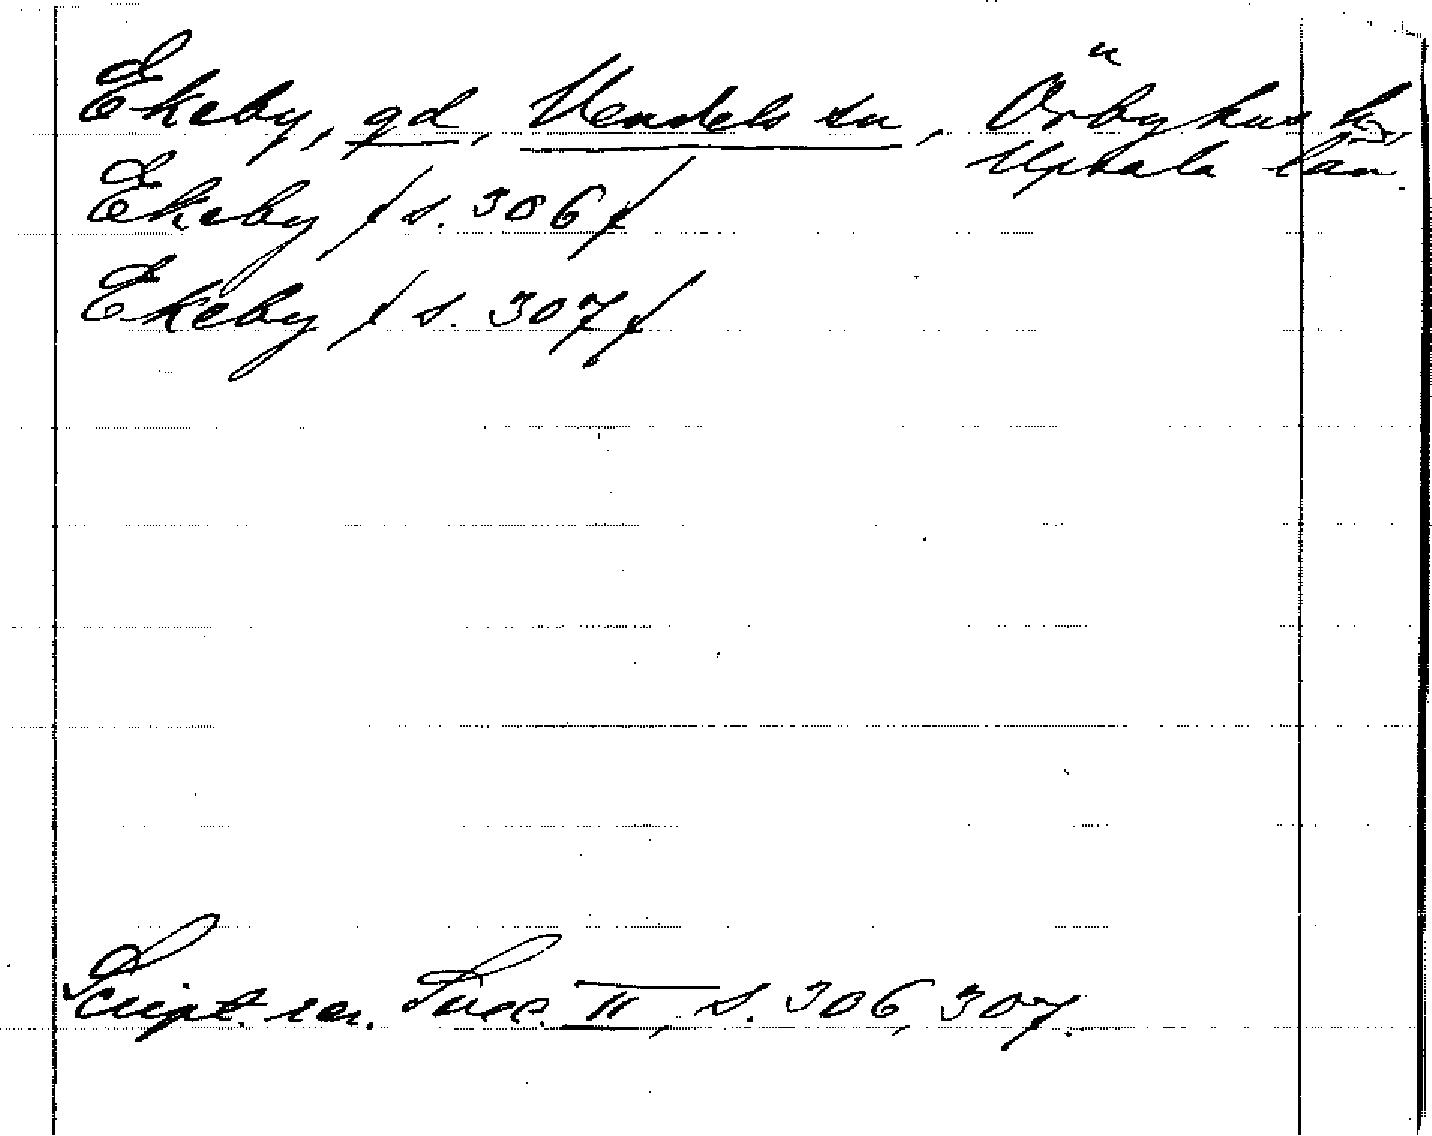 Ekeby, gd, Vendels sn, Örbyhus hd,
Upsala län.
Ekeby /s. 306/
Ekeby /s. 307/
Script. rer. Suec. II, s. 306, 307.